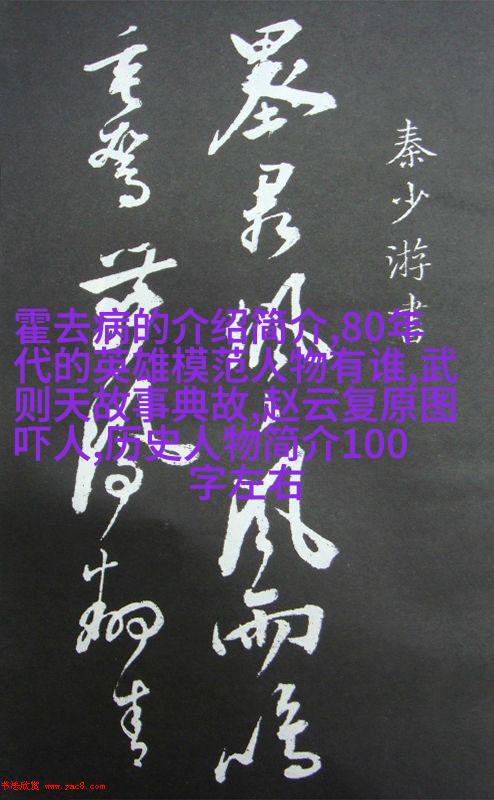 秦少游書
墨君 風雨鳴
舞 翔青
霍去病的介绍简介,80年
代的英雄模范人物有谁,武
则天故事典故,赵云复原图
吓人,历史人物简介100
字左右
书法欣赏 www.yac8.com